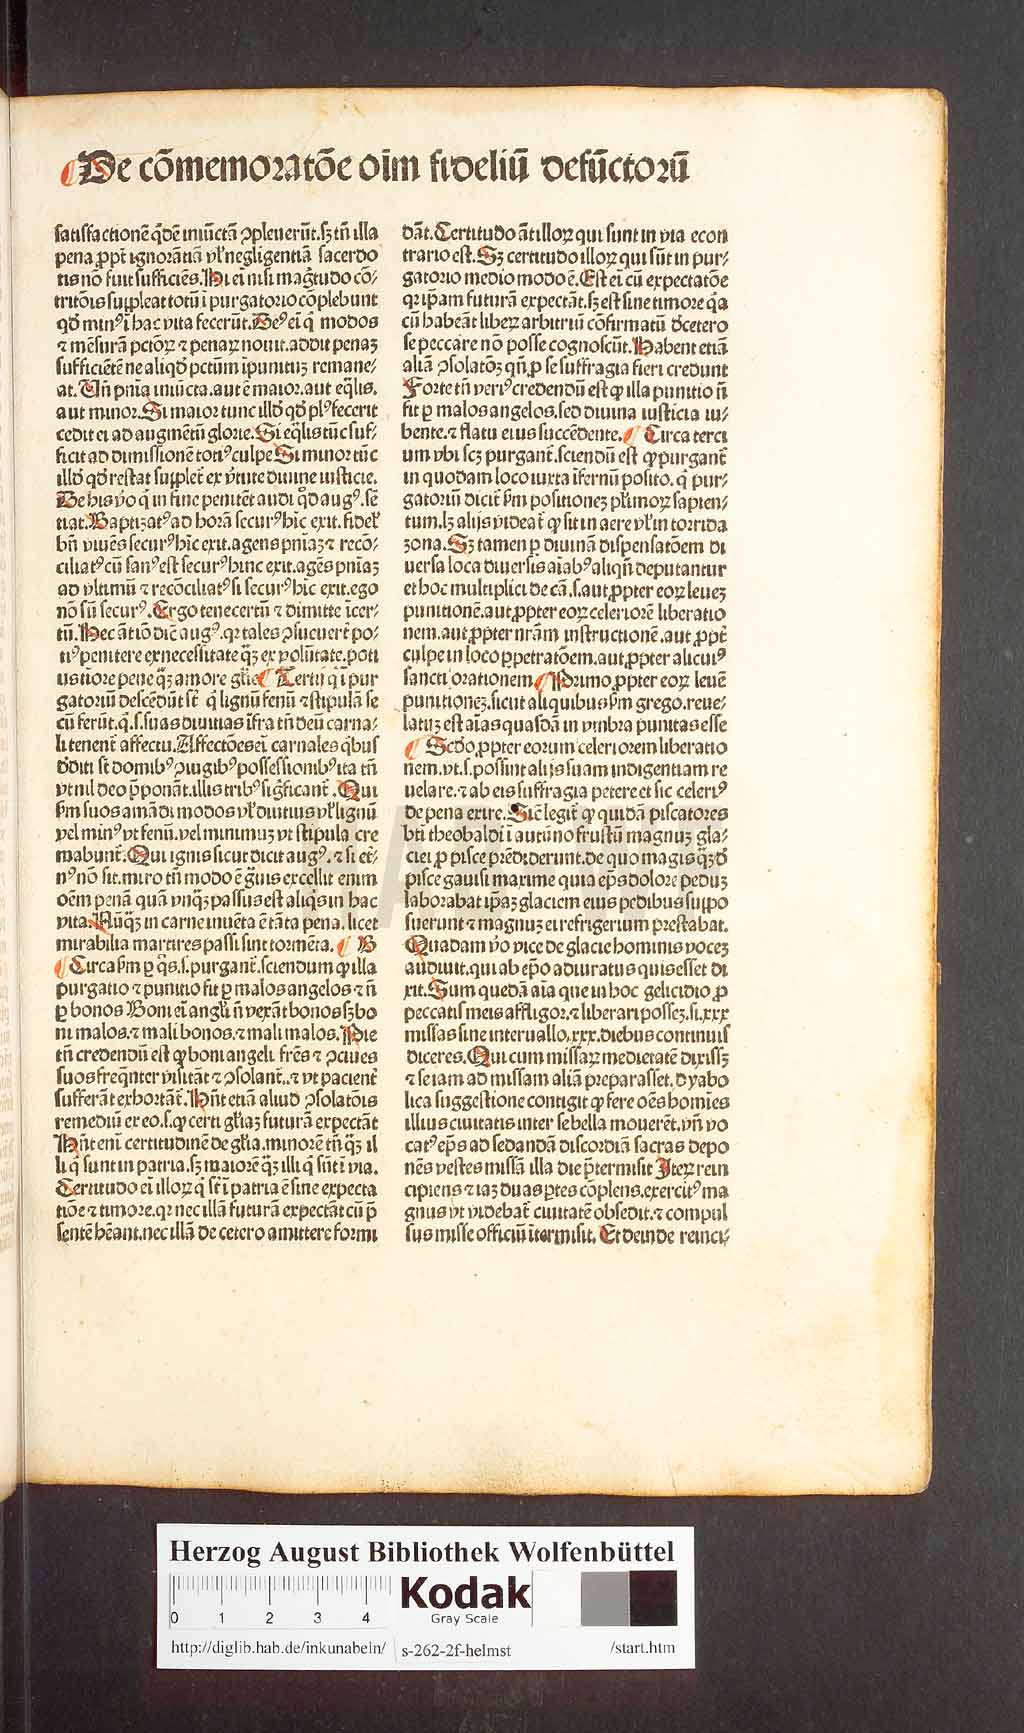 De cōmemoratōe oīm fideliū defūctorū
satisfactionē q̄dē iniūctā ↄpleuerūt.sꝫ tn̄ illa
pena ꝓpt̄ ignorātiā vl̓ negligentiā sacerdo
tis nō fuit sufficiēs. Ni ei nisi maḡtudo cō-
tritōis suppleat totū ī purgatorio cōplebunt
qd̓ min⁹ ī hac vita fecerūt. De⁹ ei q̄ modos
⁊ mēsurā pctōꝝ ⁊ penaꝝ nouit. addit penaꝫ
sufficiētē ne aliqd̓ pctūm īpunituꝫ remane-
at. Un̄ pn̄ia iniūcta. aut ē maior. aut eq̄lis.
aut minor. Si maior tunc illd̓ qd̓ pl⁹ fecerit
cedit ei ad augmētū glorie. Si eq̄lis tūc suf-
ficit ad dimissionē toti⁹ culpe Si minor tūc
illd̓ qd̓ restat supplet̄ ex v̓tute diuine iusticie.
De his v̓o q̄ in fine penitēt audi q̄d aug⁹. sē
tiat. Baptizat⁹ ad horā secur⁹ hīc exit. fidel̓
bn̄ viuēs secur⁹ hīc exit. agens pn̄iaꝫ ⁊ recō-
ciliat⁹ cū san⁹ est secur⁹ hinc exit. agēs pn̄iaꝫ
ad vltimū ⁊ recōciliat⁹ si secur⁹ hīc exit. ego
nō sū secur⁹. Ergo tene certū ⁊ dimitte īcer-
tū. Hec āt iō dic̄ aug⁹. qꝛ tales ↄsueuert̄ po-
ti⁹ penitere ex necessitate q̄ꝫ ex volūtate. poti
us timore pene q̄ꝫ amore gl̓ie Tertij q̄ ī pur
gatoriū descēdūt st̄ q̄ lignū fenū ⁊ stipulā se
cū ferūt. q̄. s. suas diuitias īfra tn̄ deū carna-
li tenent̄ affectu. Affectōes ei carnales q̄bus
d̓diti st̄ domib⁹ ↄiugib⁹ possessionib⁹ ita tn̄
vt nil deo p̄ponāt. illis trib⁹ sig̓ficant̄. Qui
ẜm suos amādi modos vl̓ diutius vl̓ lignū
vel min⁹ vt fenū. vel minimuꝫ vt stipula cre
mabunt̄. Qui ignis sicut dicit aug⁹. ⁊ si et̄-
n⁹ nō sit. miro tn̄ modo ē g̓uis excellit enim
oēm penā quā vnq̄ꝫ passus est aliq̄s in hac
vita. Nūq̄ꝫ in carne inuēta ē tāta pena. licet
mirabilia martires passi sunt tormēta. B
Circa ẜm ꝑ q̄s. s. purgant̄. sciendum ꝙ illa
purgatio ⁊ punitio fit ꝑ malos angelos ⁊ n̄
ꝑ bonos Boni ei angl̓i n̄ vexāt bonos sꝫ bo
ni malos. ⁊ mali bonos. ⁊ mali malos. Pie
tn̄ credendū est ꝙ boni angeli frēs ⁊ ↄciues
suos freq̄nter visitāt ⁊ ↄsolant̄. ⁊ vt pacient̄
sufferāt exhortāt̄. Hn̄t etiā aliud ↄsolatōis
remediū ex eo. s. ꝙ certi gl̓iaꝫ futurā expectāt
Hn̄t eni certitudinē de gl̓ia. minorē tn̄ q̄ꝫ il
li q̄ sunt in patria. sꝫ maiorē q̄ꝫ illi q̄ sūt ī via.
Certitudo ei illoꝝ q̄ st̄ ī patria ē sine expecta
tiōe ⁊ timore. qꝛ nec illā futurā expectāt cū p̄
sentē hēant. nec illā de cetero amittere formi
dāt. Certitudo āt illoꝝ qui sunt in via econ
trario est. Sꝫ certitudo illoꝝ qui sūt in pur-
gatorio medio modo ē. Est ei cū expectatōe
qꝛ ip̄am futurā expectāt. sꝫ est sine timore q̄a
cū habeāt liberꝝ arbitriū cōfirmatū d̓cetero
se peccare nō posse cognoscūt. Habent etiā
aliā ↄsolatōꝫ qn̄ ꝓ se suffragia fieri credunt
Forte tn̄ veri⁹ credendū est ꝙ illa punitio n̄
fit ꝑ malos angelos. sed diuina iusticia iu-
bente. ⁊ flatu eius succēdente. Circa terci
um vbi scꝫ purgant̄. sciendū est ꝙ purgant̄
in quodam loco iuxta īfernū posito. q̄ pur-
gatoriū dicit̄ ẜm positioneꝫ pl̓imoꝝ sapien-
tum. lꝫ alijs videat̄ ꝙ sit in aere vl̓ in torrida
zona. Sꝫ tamen ꝑ diuinā dispensatōem di
uersa loca diuersis aīab⁹ aliqn̄ deputantur
et hoc multiplici de cā. s. aut ꝓpter eoꝝ leueꝫ
punitionē. aut ꝓpter eoꝝ celeriorē liberatio
nem. aut ꝓpter nr̄am instructionē. aut ꝓpt̄
culpe in loco ꝑpetratōem. aut ꝓpter alicui⁹
sancti orationem Primo ꝓpter eoꝝ leuē
punitioneꝫ. sicut aliquibus ẜm grego. reue-
latuꝫ est aīas quasdā in vmbra punitas esse
Scd̓o ꝓpter eorum celeriorem liberatio
nem. vt. s. possint alijs suam indigentiam re
uelare. ⁊ ab eis suffragia petere et sic celeri⁹
de pena exire. Sic̄ legit̄ ꝙ quidā piscatores
bt̄i theobaldi ī autūno frustū magnuꝫ gla-
ciei ꝓ pisce prēdiderunt. de quo magis q̄ꝫ d̓
pisce gauisi maxime quia ep̄s dolore peduꝫ
laborabat ip̄aꝫ glaciem eius pedibus suppo
suerunt ⁊ magnuꝫ ei refrigerium prestabat.
Quadam v̓o vice de glacie hominis voceꝫ
audiuit. qui ab ep̄o adiuratus quis esset di
xit. Sum quedā aīa que in hoc gelicidio ꝓ
peccatis meis affligor. ⁊ liberari posseꝫ. si. xxx
missas sine interuallo. xxx. diebus continuis
diceres. Qui cum missaꝝ medietatē dixissꝫ
⁊ se iam ad missam aliā preparasset. dyabo
lica suggestione contigit ꝙ fere oēs homīes
illius ciuitatis inter se bella mouerēt. vn̄ vo
cat⁹ ep̄s ad sedandā discordiā sacras depo
nēs vestes missā illa die p̄termisit Iteꝝ rein
cipiens ⁊ iaꝫ duas ꝑtes cōplens. exercit⁹ ma
gnus vt videbat̄ ciuitatē obsedit. ⁊ compul
sus misse officiū ītermisit. Et deinde reinci-
Herzog August Bibliothek Wolfenbüttel
0 1 2 3 4
Kodak
Gray Scale
http://diglib.hab.de/inkunabeln/ s-262-2f-helmst /start.htm